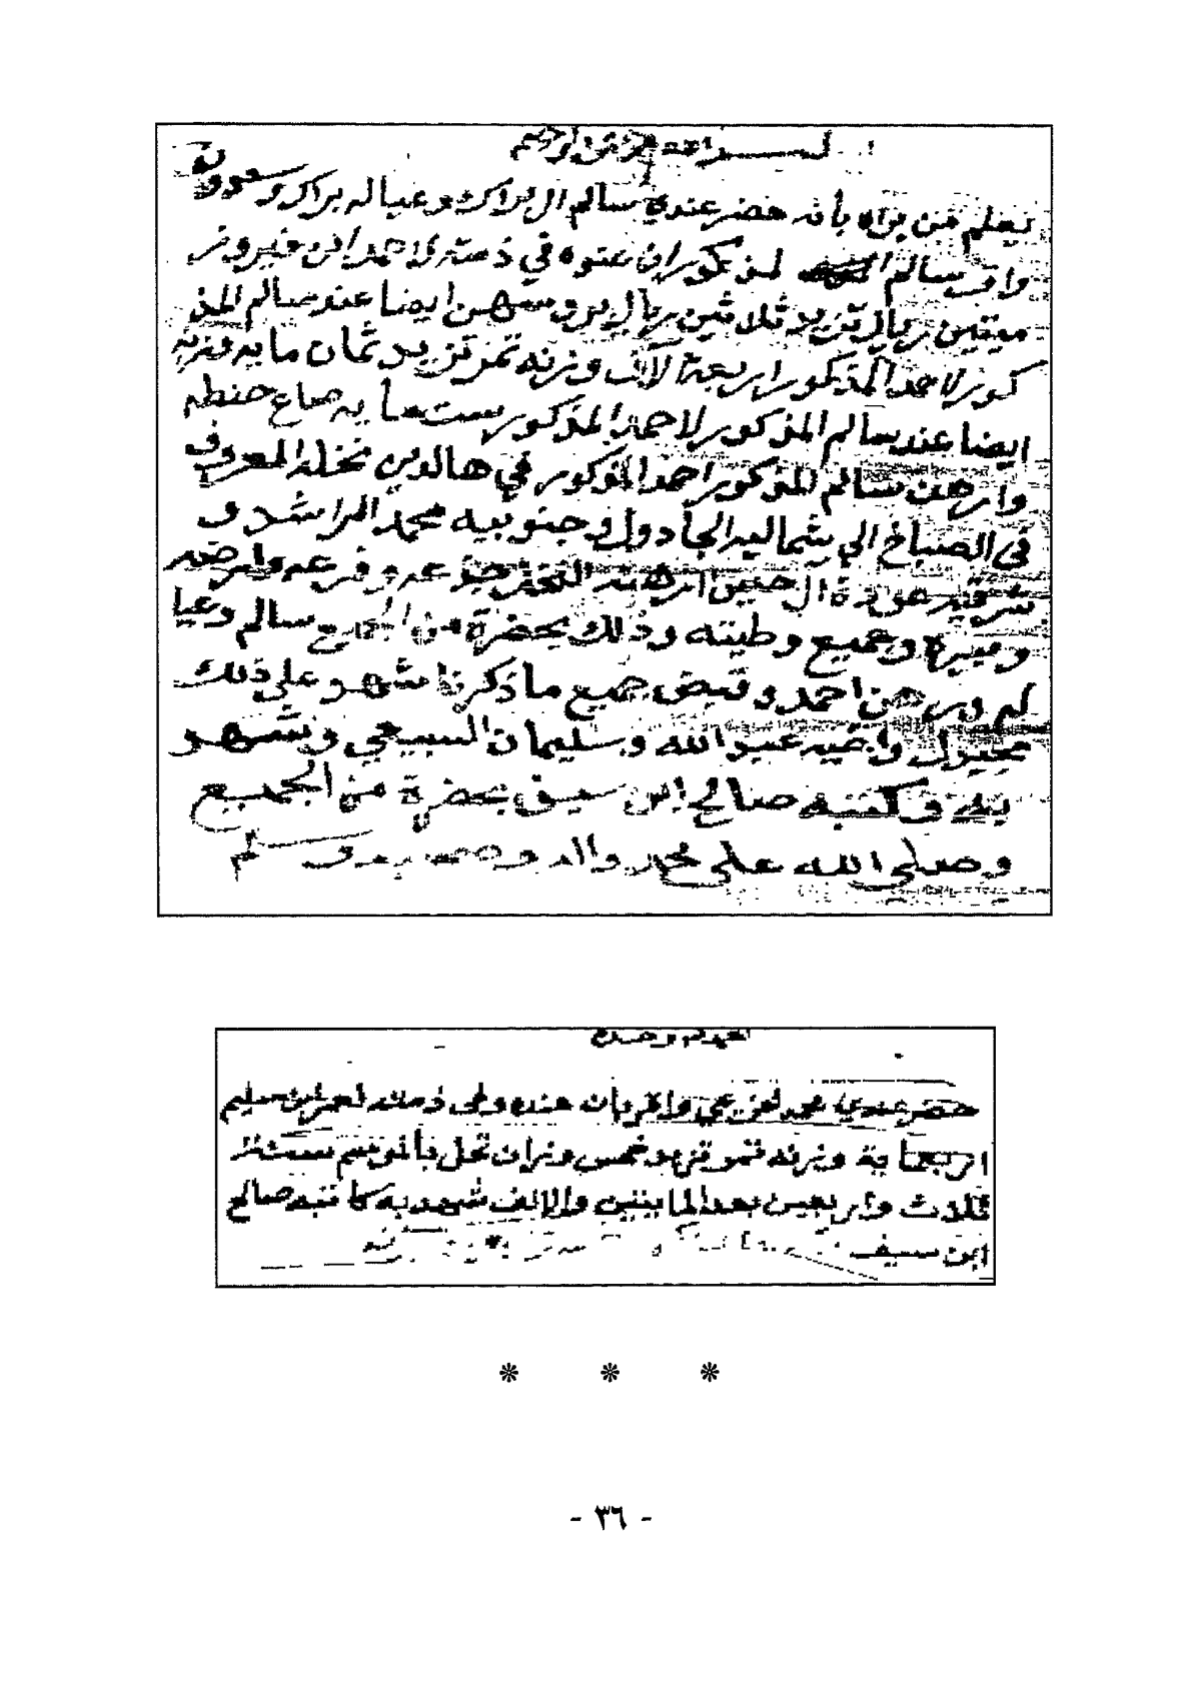 بسم الله الرحمن الرحيم
يعلم من يراه بأنه حضر عندي سالم ال براك وعياله براك وسعود
واقر سالم المذكور ان عنده في ذمته لاحمد ابن فيروز
ميتين ريال تزيد ثلاثين ريال ايضا عند سالم المذ
كور لاحمد المذكور اربعة آلاف وزنه تمر تزيد ثمان مايه وزنه
ايضا عند سالم المذكور لاحمد المذكور ست مايه صاع حنطه
وارهن سالم المذكور احمد المذكور في هالدين نخله المعروف
في الصباخ الي شماليه الجادول وجنوبيه محمد الراشد و
شرقيه ال حنين ارهنه النخل جذعه وفرعه وارضه
وبيره وجميع وطيته وذلك بحضرة من الجميع سالم وعيا
له ورهن احمد وقبض جميع ما ذكرنا شهد على ذلك
واخيه عبد الله وسليمان السبيعي وشهد
به وكتبه صالح ابن سيف بحضرة من الجميع
وصلى الله على محمد واله وصحبه وسلم
الحمد لله وحده
حضر عندي محمد واقر بان عنده وفي ذمته لعمر ابن سليم
اربعماية وزنه تمر تزيد خمس وزان تحل بالموسم سنة
ثلاث واربعين بعد المايتين والالف شهد به كاتبه صالح
ابن سيف
* * *
- ٣٦ -